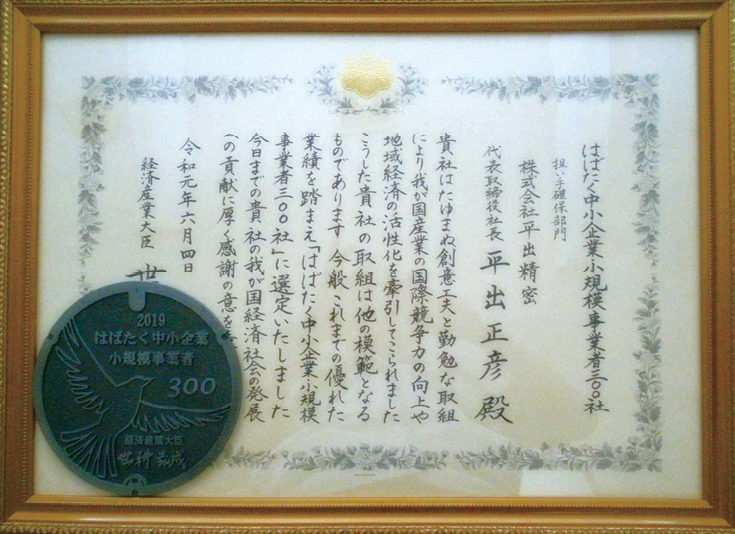 はばたく中小企業小規模事業者三〇〇社
担い手確保部門
株式会社平出精密
代表取締役社長 平出正彦 殿
貴社はたゆまぬ創意工夫と勤勉な取組
により我が国産業の国際競争力の向上や
地域経済の活性化を牽引してこられました
こうした貴社の取組は他の模範となる
ものであります 今般これまでの優れた
業績を踏まえ「はばたく中小企業小規模
事業者三〇〇社」に選定いたしました
今日までの貴社の我が国経済社会の発展
への貢献に厚く感謝の意を
令和元年六月四日
経済産業大臣 世
2019
はばたく中小企業
小規模事業者
300
経済産業大臣
世耕弘成